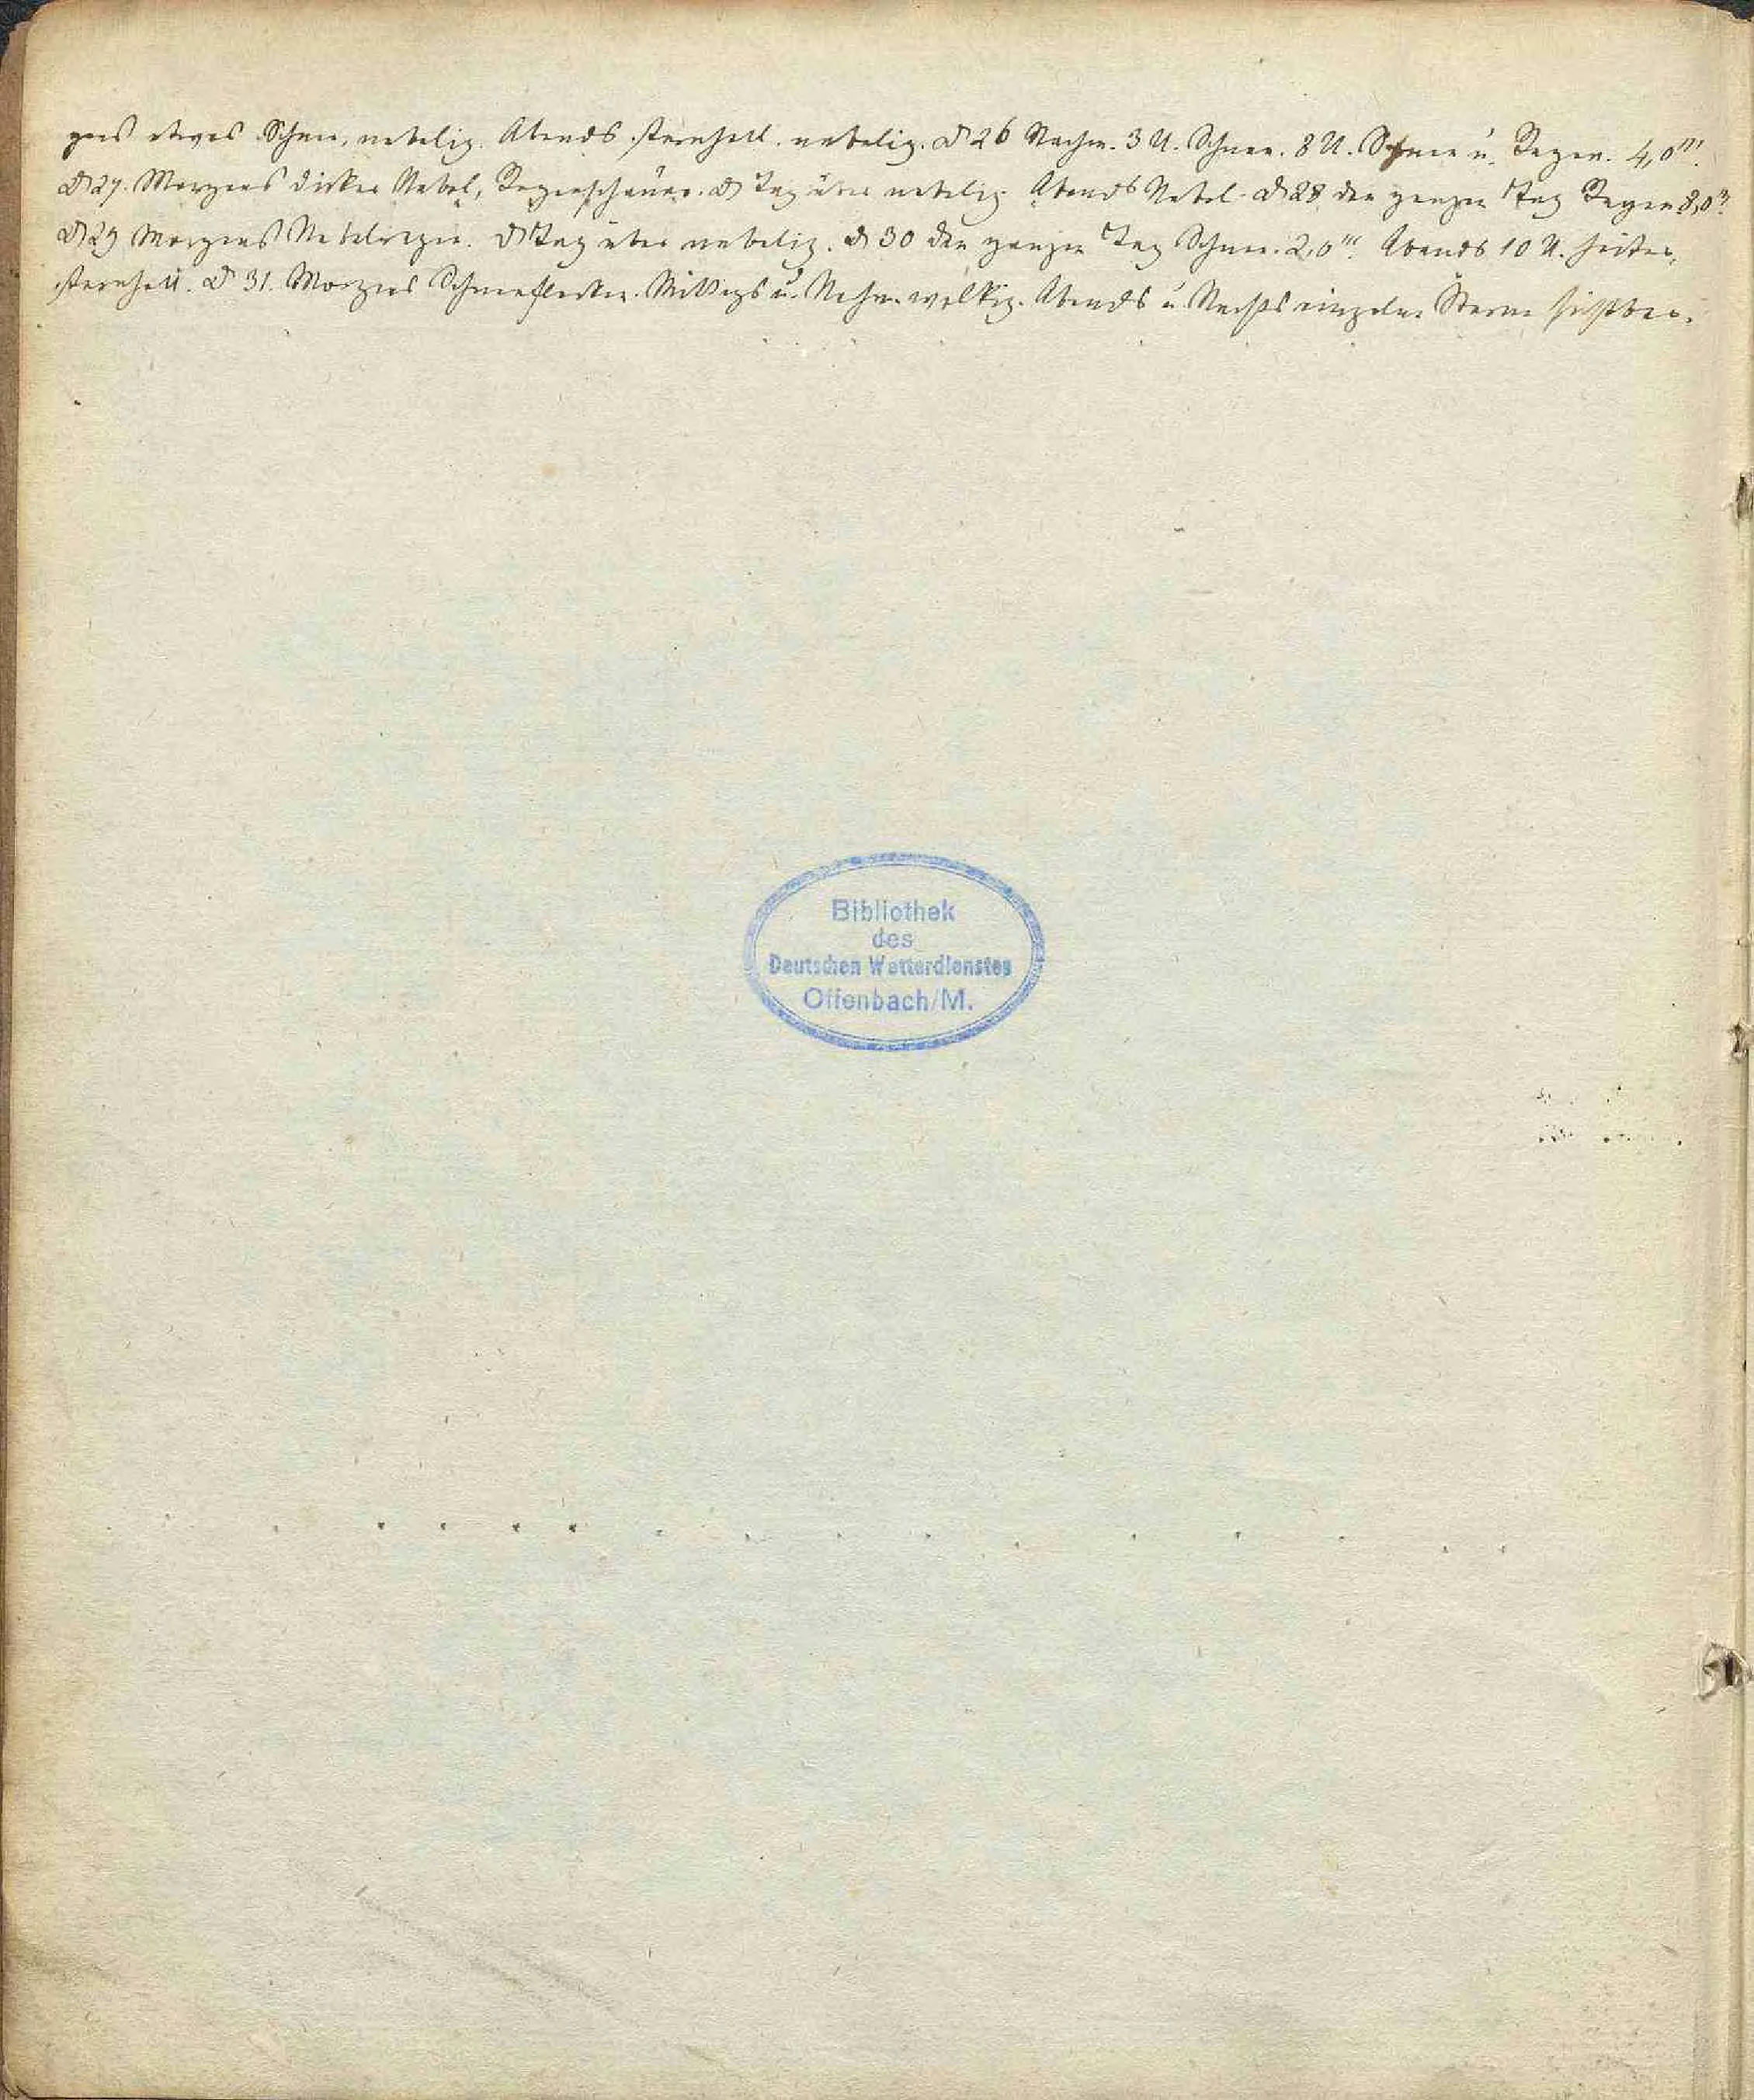 gens etwas Schnee, nebelig. Abends sternhell. nebelig. d 26 Nachm. 3 U. Schnee. 8 U. Schnee u. Regen. 4,0'''.
d 27. Morgens dicker Nebel, Regenschauer. d Tag über nebelig Abends Nebel. d 28 den ganzen Tag Regen 8,0'''.
d 29 Morgens Nebelregen. d Tag über nebelig. d 30 den ganzen Tag Schnee. 2,0'''. Abends 10 U. heiter,
sternhell. d 31. Morgens Schneeflocken. Mittags u. Nachm. wolkig. Abends u Nachts einzelne Sterne sichtbar.
Bibliothek
des
Deutschen Wetterdienstes
Offenbach/M.